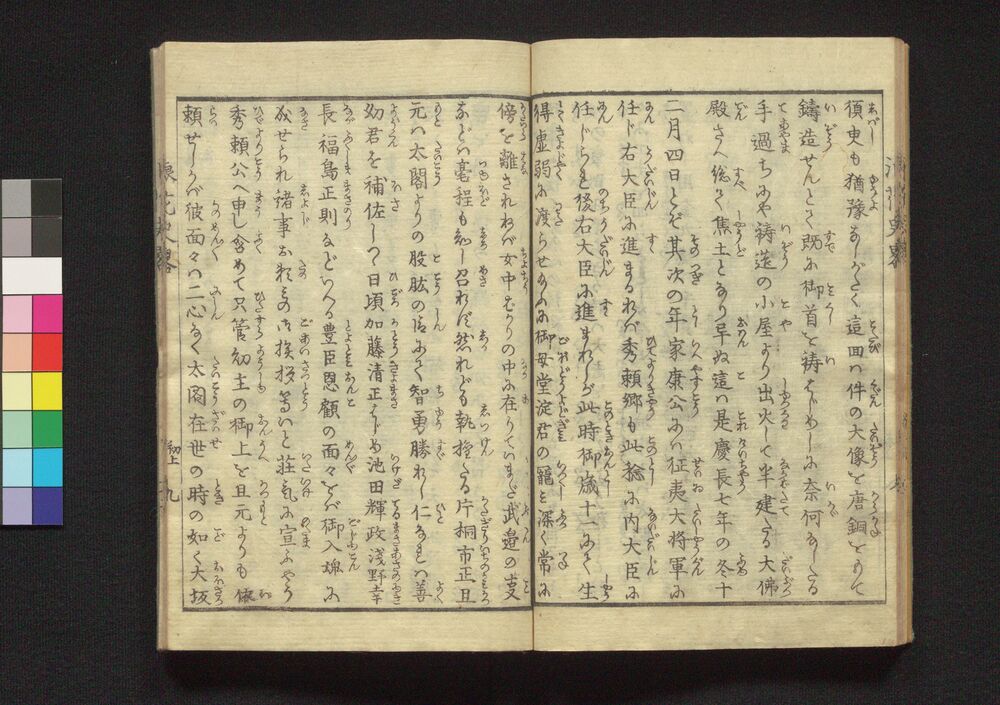 須臾も猶豫なしがたく這回ハ件の大像を唐銅をもて
鋳造せんとて既に御首を鋳をはめしに奈何なしたる
手過ちにや鋳造の小屋より出火して半建たる大佛
殿さへ総て焦土となり早ぬ這ハ是慶長七年の冬十
二月四日とぞ其次の年家康公にハ征夷大将軍に
任じ右大臣に進まるれバ秀頼郷も此稔に内大臣に
任じられ後右大臣に進まれしが此時御歳十一にて生
得虚弱に渡らせ給ふに御母堂淀君の寵を深く常に
傍を離されねバ女中ばかりの中に在りていまだ武邉の支
などハ毫程も知し召れず然れども執権たる片桐市正且
元ハ太閤よりの股肱の臣にて智勇勝れし仁なれハ善
幼君を補佐しつ日頃加藤清正はじめ池田輝政浅野幸
長福島正則などいへる豊臣恩顧の面々をバ御入魂に
成せられ諸事お頼みの御挨拶等いと莊氣に宣ふやう
秀頼公へ申し含めて只管幼主の御上を且元よりも依
頼せしかバ彼面々ハ二心なく太閤在世の時の如く大坂
初上
九